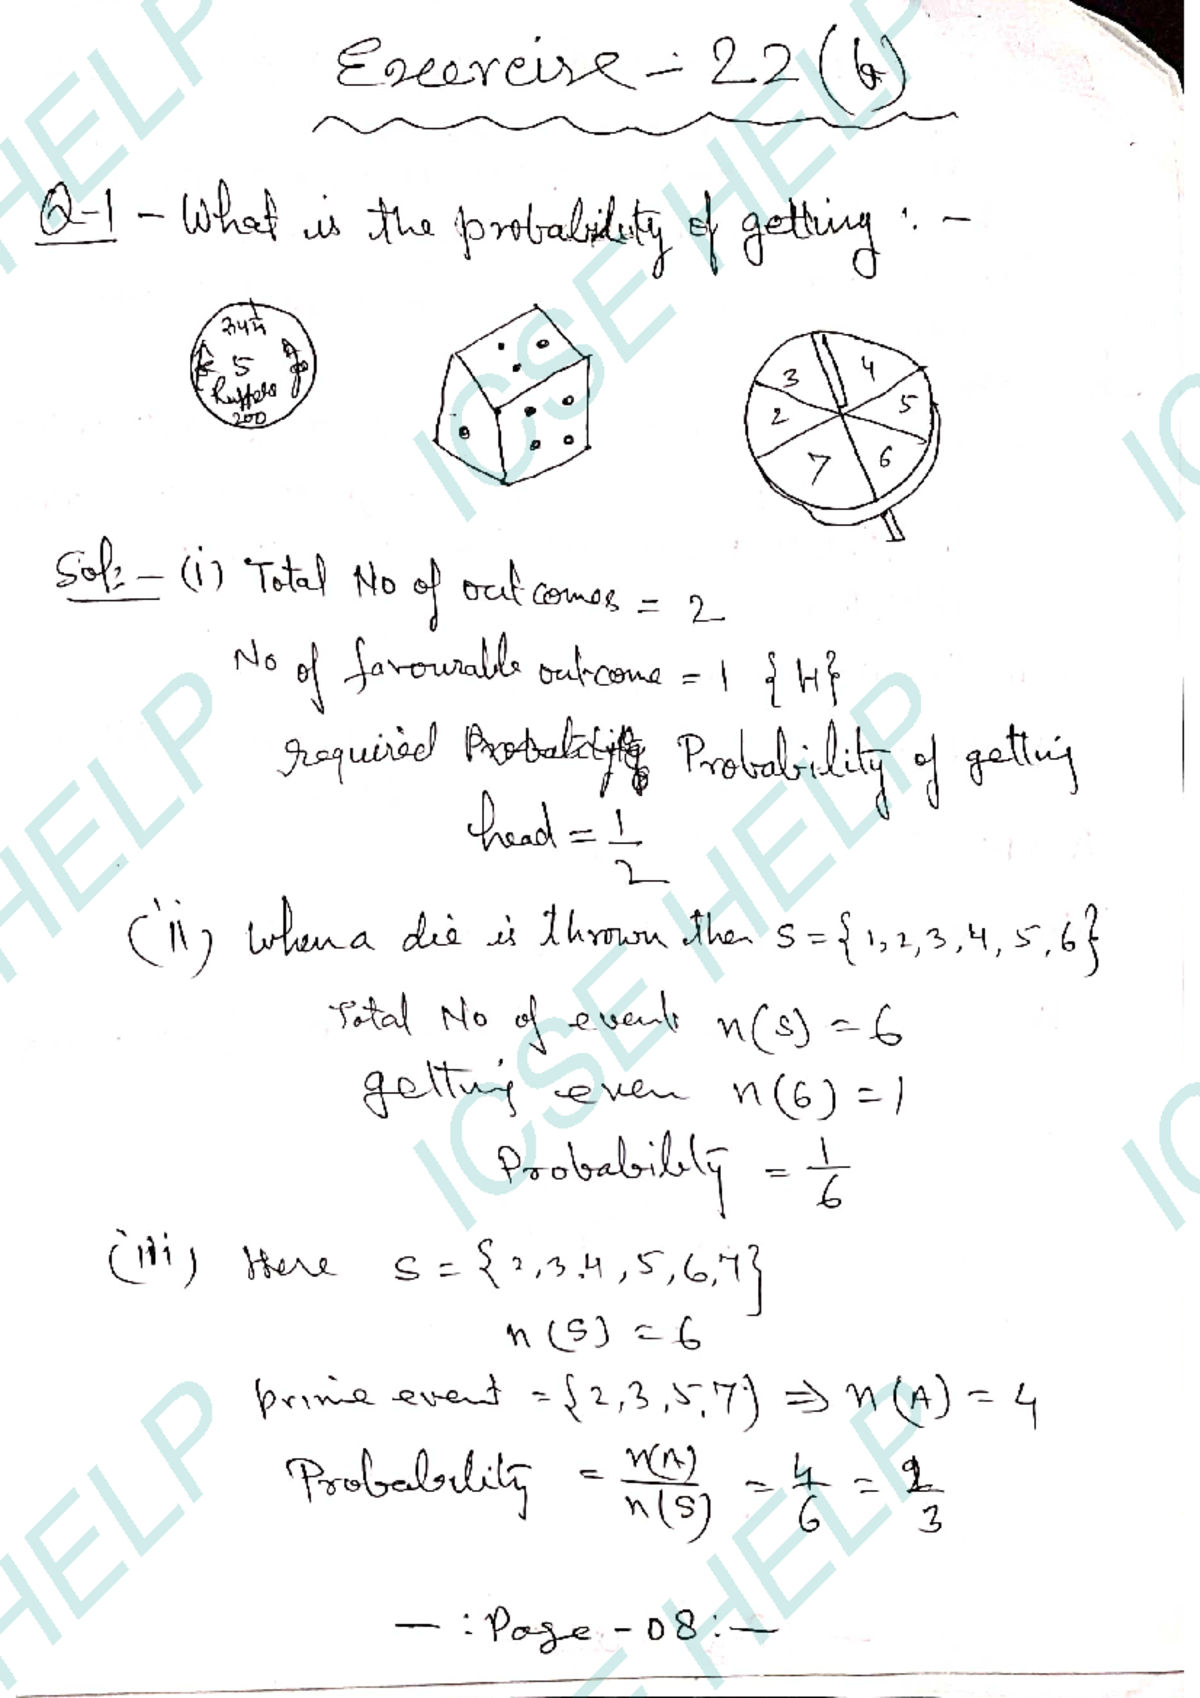 Exercise - 22(b)
Q-1 - What is the probability of getting : -
5
200
3
4
2
5
7
6
Sol:- (i) Total No of outcomes = 2
No of favourable outcome = 1 {H}
required Probability Probability of getting
head = 1/2
(ii) When a die is thrown then S = {1,2,3,4,5,6}
Total No of events n(S) = 6
getting even n(6) = 1
Probability = 1/6
(iii) Here S = {2,3,4,5,6,7}
n(S) = 6
prime event = {2,3,5,7} ⇒ n(A) = 4
Probability = n(A)/n(S) = 4/6 = 2/3
- : Page - 08 : -
ICSE HELP